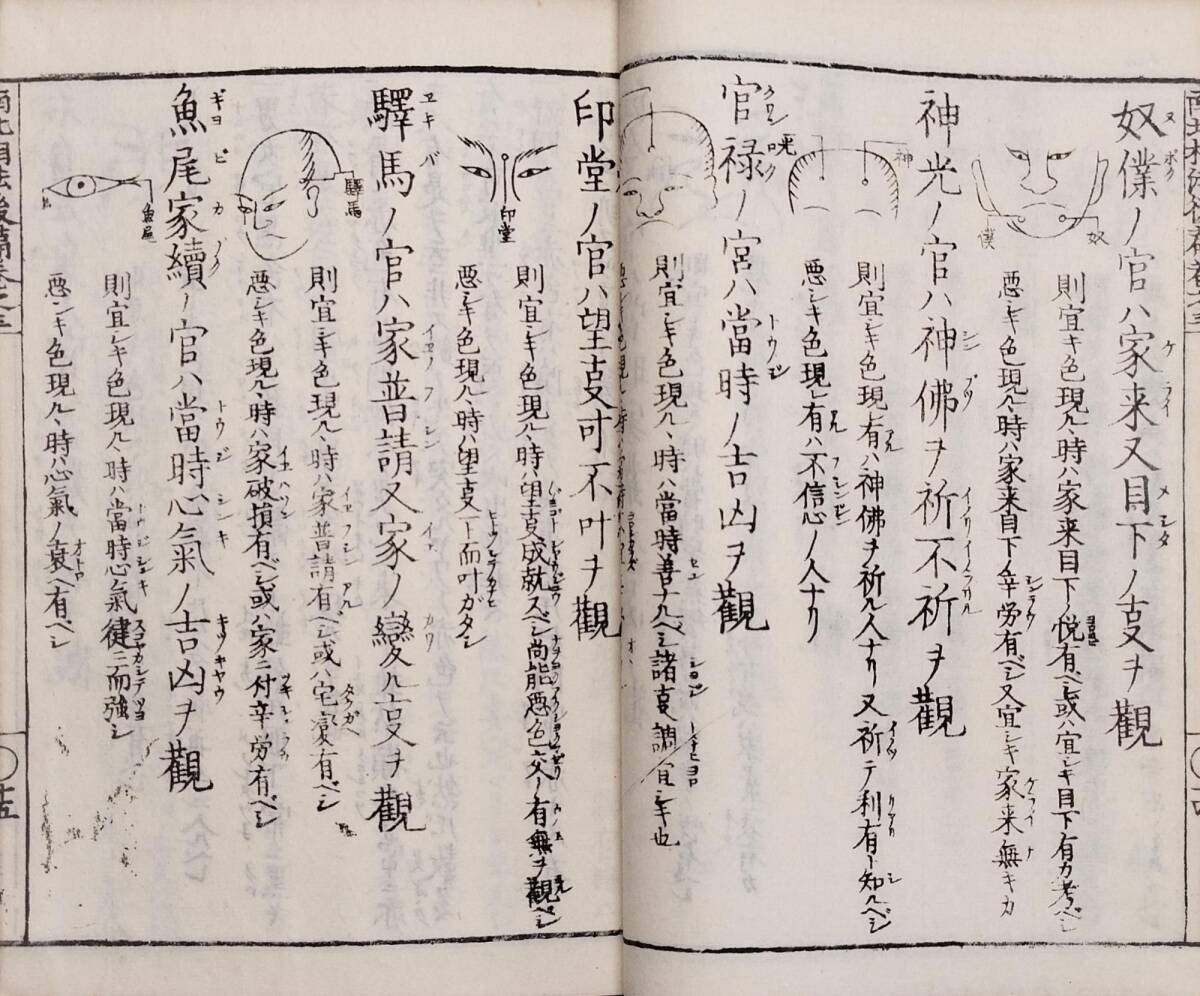 奴僕ノ官ハ家来又目下ノ吉凶ヲ觀
奴
僕
則宜キ色現ルヽ時ハ家来目下ノ悦有ベシ或ハ宜シキ目下有カ考ベシ
悪シキ色現ルヽ時ハ家来目下ノ辛労有ベシ又宜シキ家来無キカ
神光ノ官ハ神佛ヲ祈不祈ヲ觀
神
光
則宜シキ色現レ有ハ神佛ヲ祈ル人ナリ又祈テ利有ト知ルベシ
悪シキ色現レ有ハ不信心ノ人ナリ
官禄ノ宮ハ當時ノ吉凶ヲ觀
則宜シキ色現ルヽ時ハ當時善ナルベシ諸事調宜シキ也
印堂ノ官ハ望支可不叶ヲ觀
印堂
則宜シキ色現ルヽ時ハ望支成就スベシ尚能悪色交ノ有無ヲ觀ベシ
悪シキ色現ルヽ時ハ望支ト而叶ガタシ
驛馬ノ官ハ家普請又家ノ變ル支ヲ觀
驛馬
則宜シキ色現ルヽ時ハ家普請有ベシ或ハ宅変有ベシ
悪シキ色現ルヽ時ハ家破損有ベシ或ハ家ニ付辛労有ベシ
魚尾家續ノ官ハ當時心氣ノ吉凶ヲ觀
魚尾
則宜シキ色現ルヽ時ハ當時心氣健ニ而強シ
悪シキ色現ルヽ時ハ心氣ノ衰ヘ有ベシ
南北相法後篇巻之三
十五